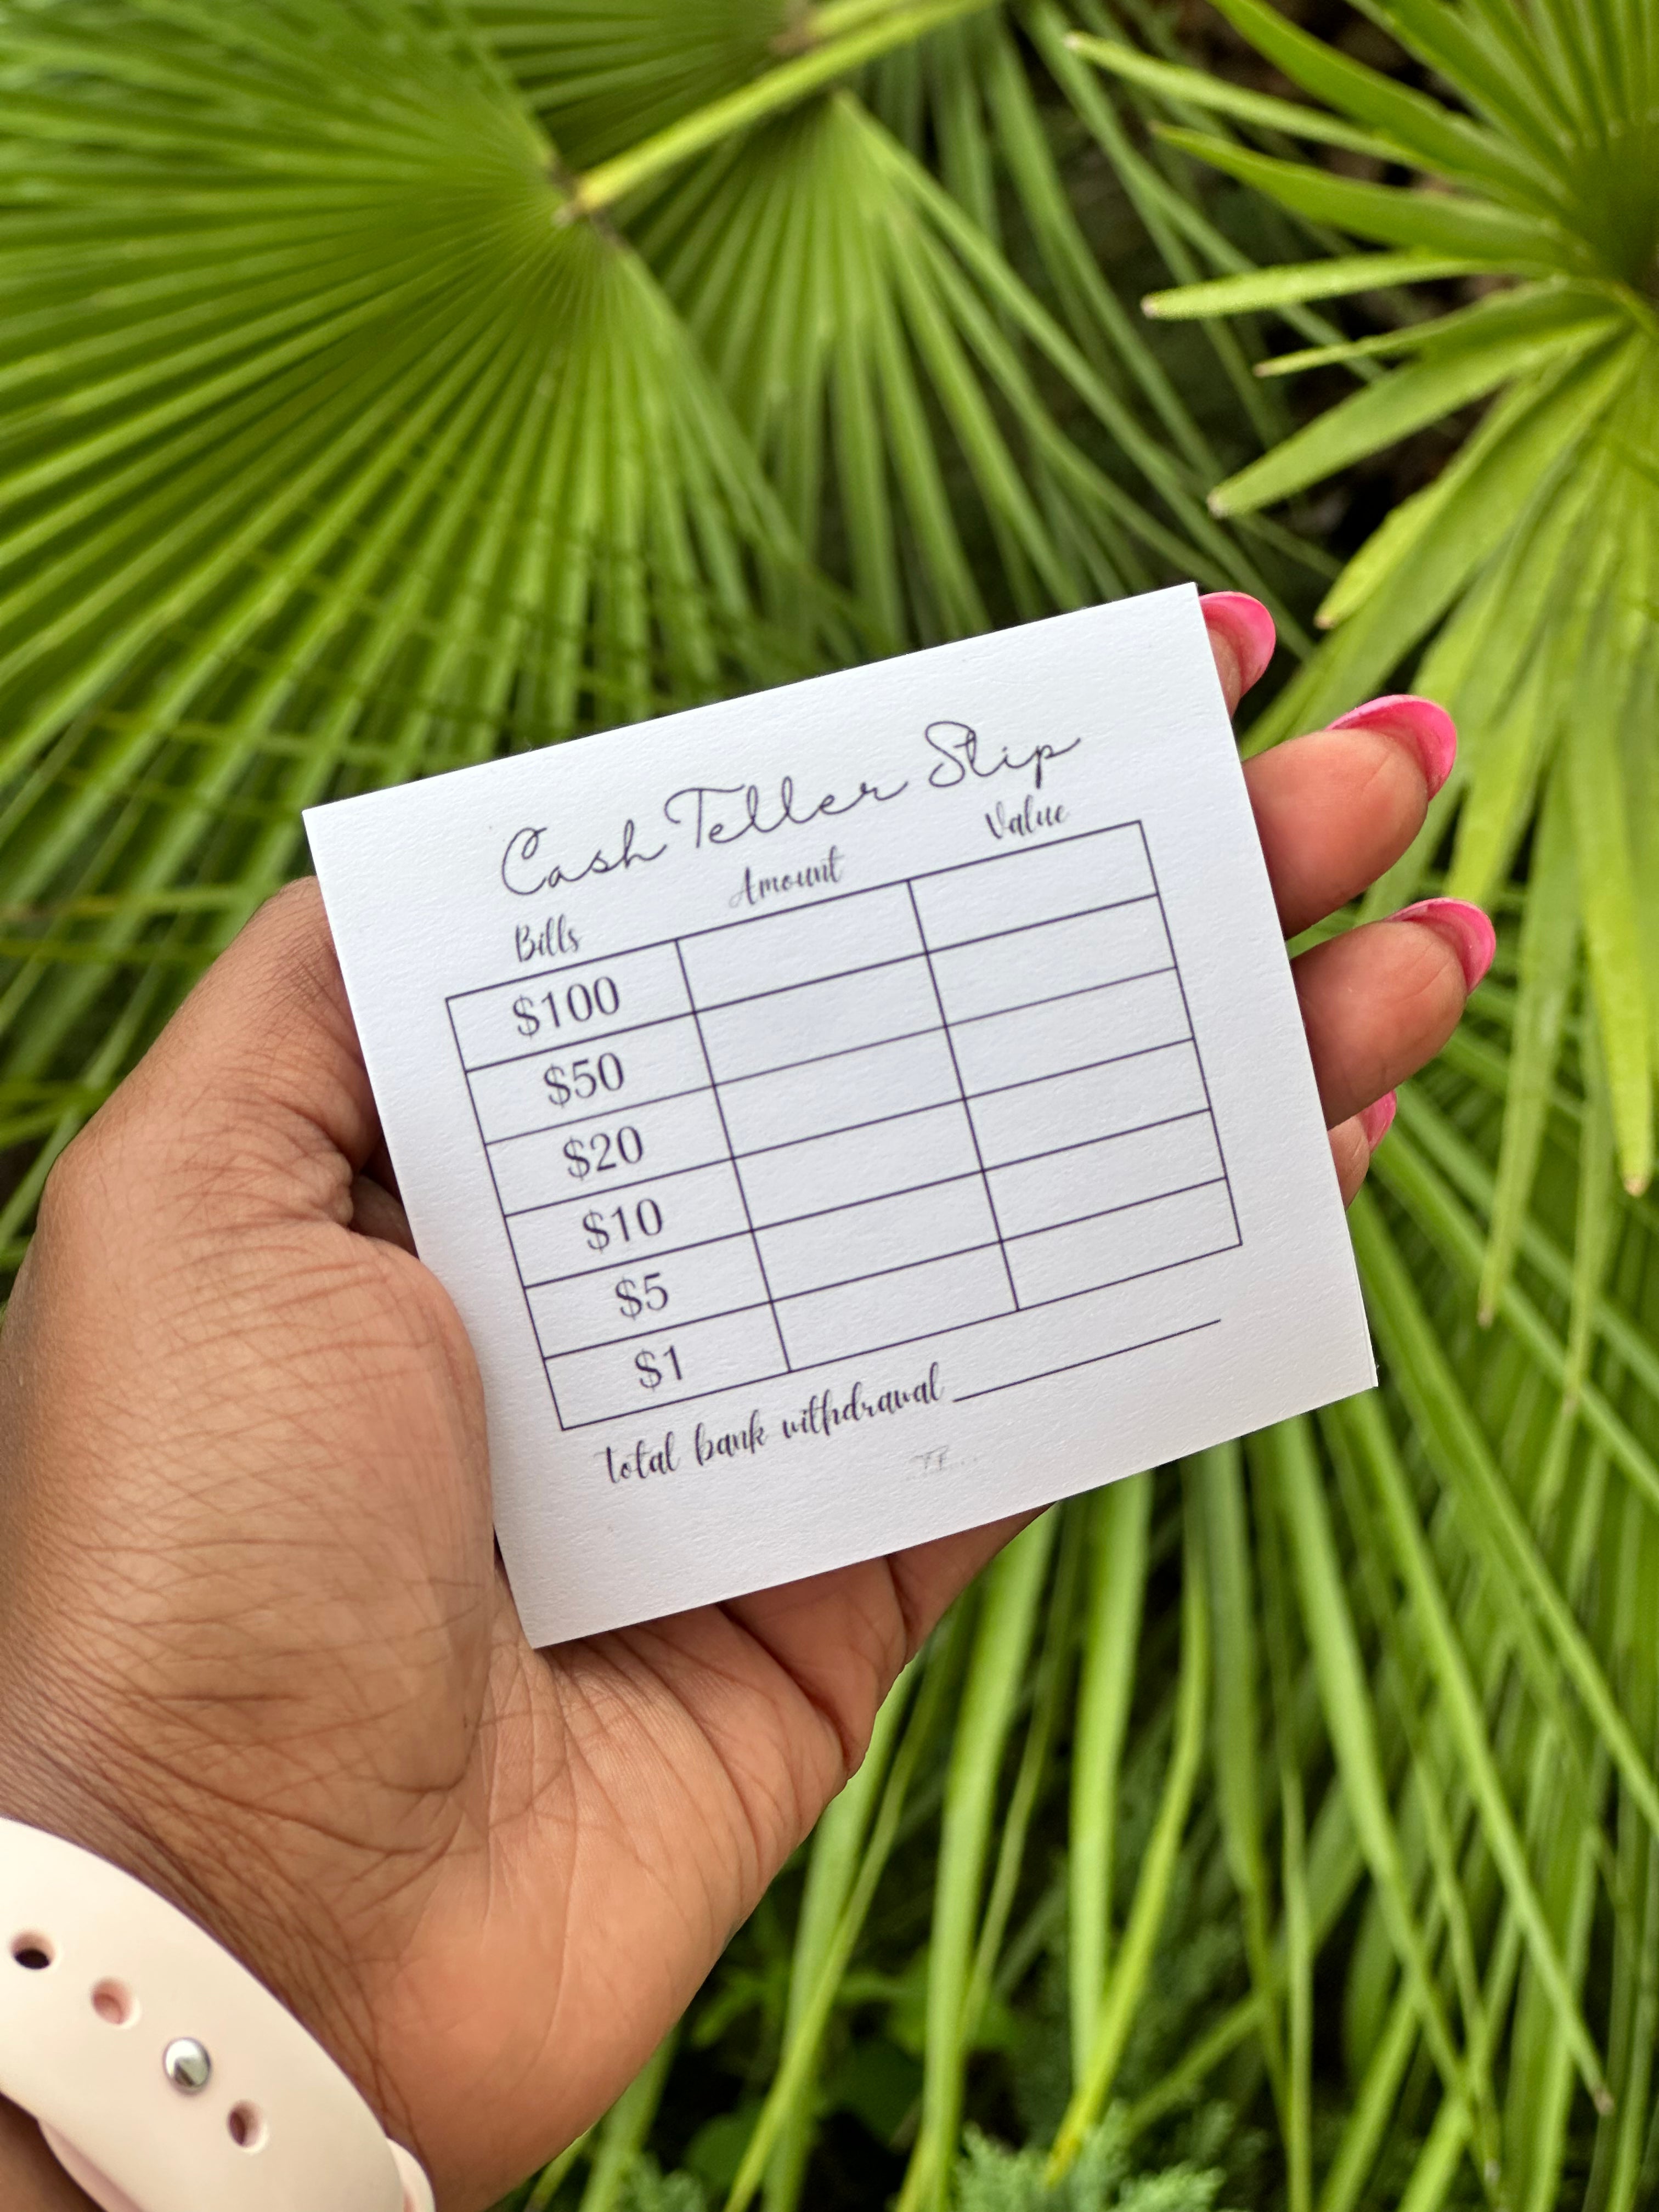 Cash Teller Slip
Bills Amount Value
$100
$50
$20
$10
$5
$1
total bank withdrawal